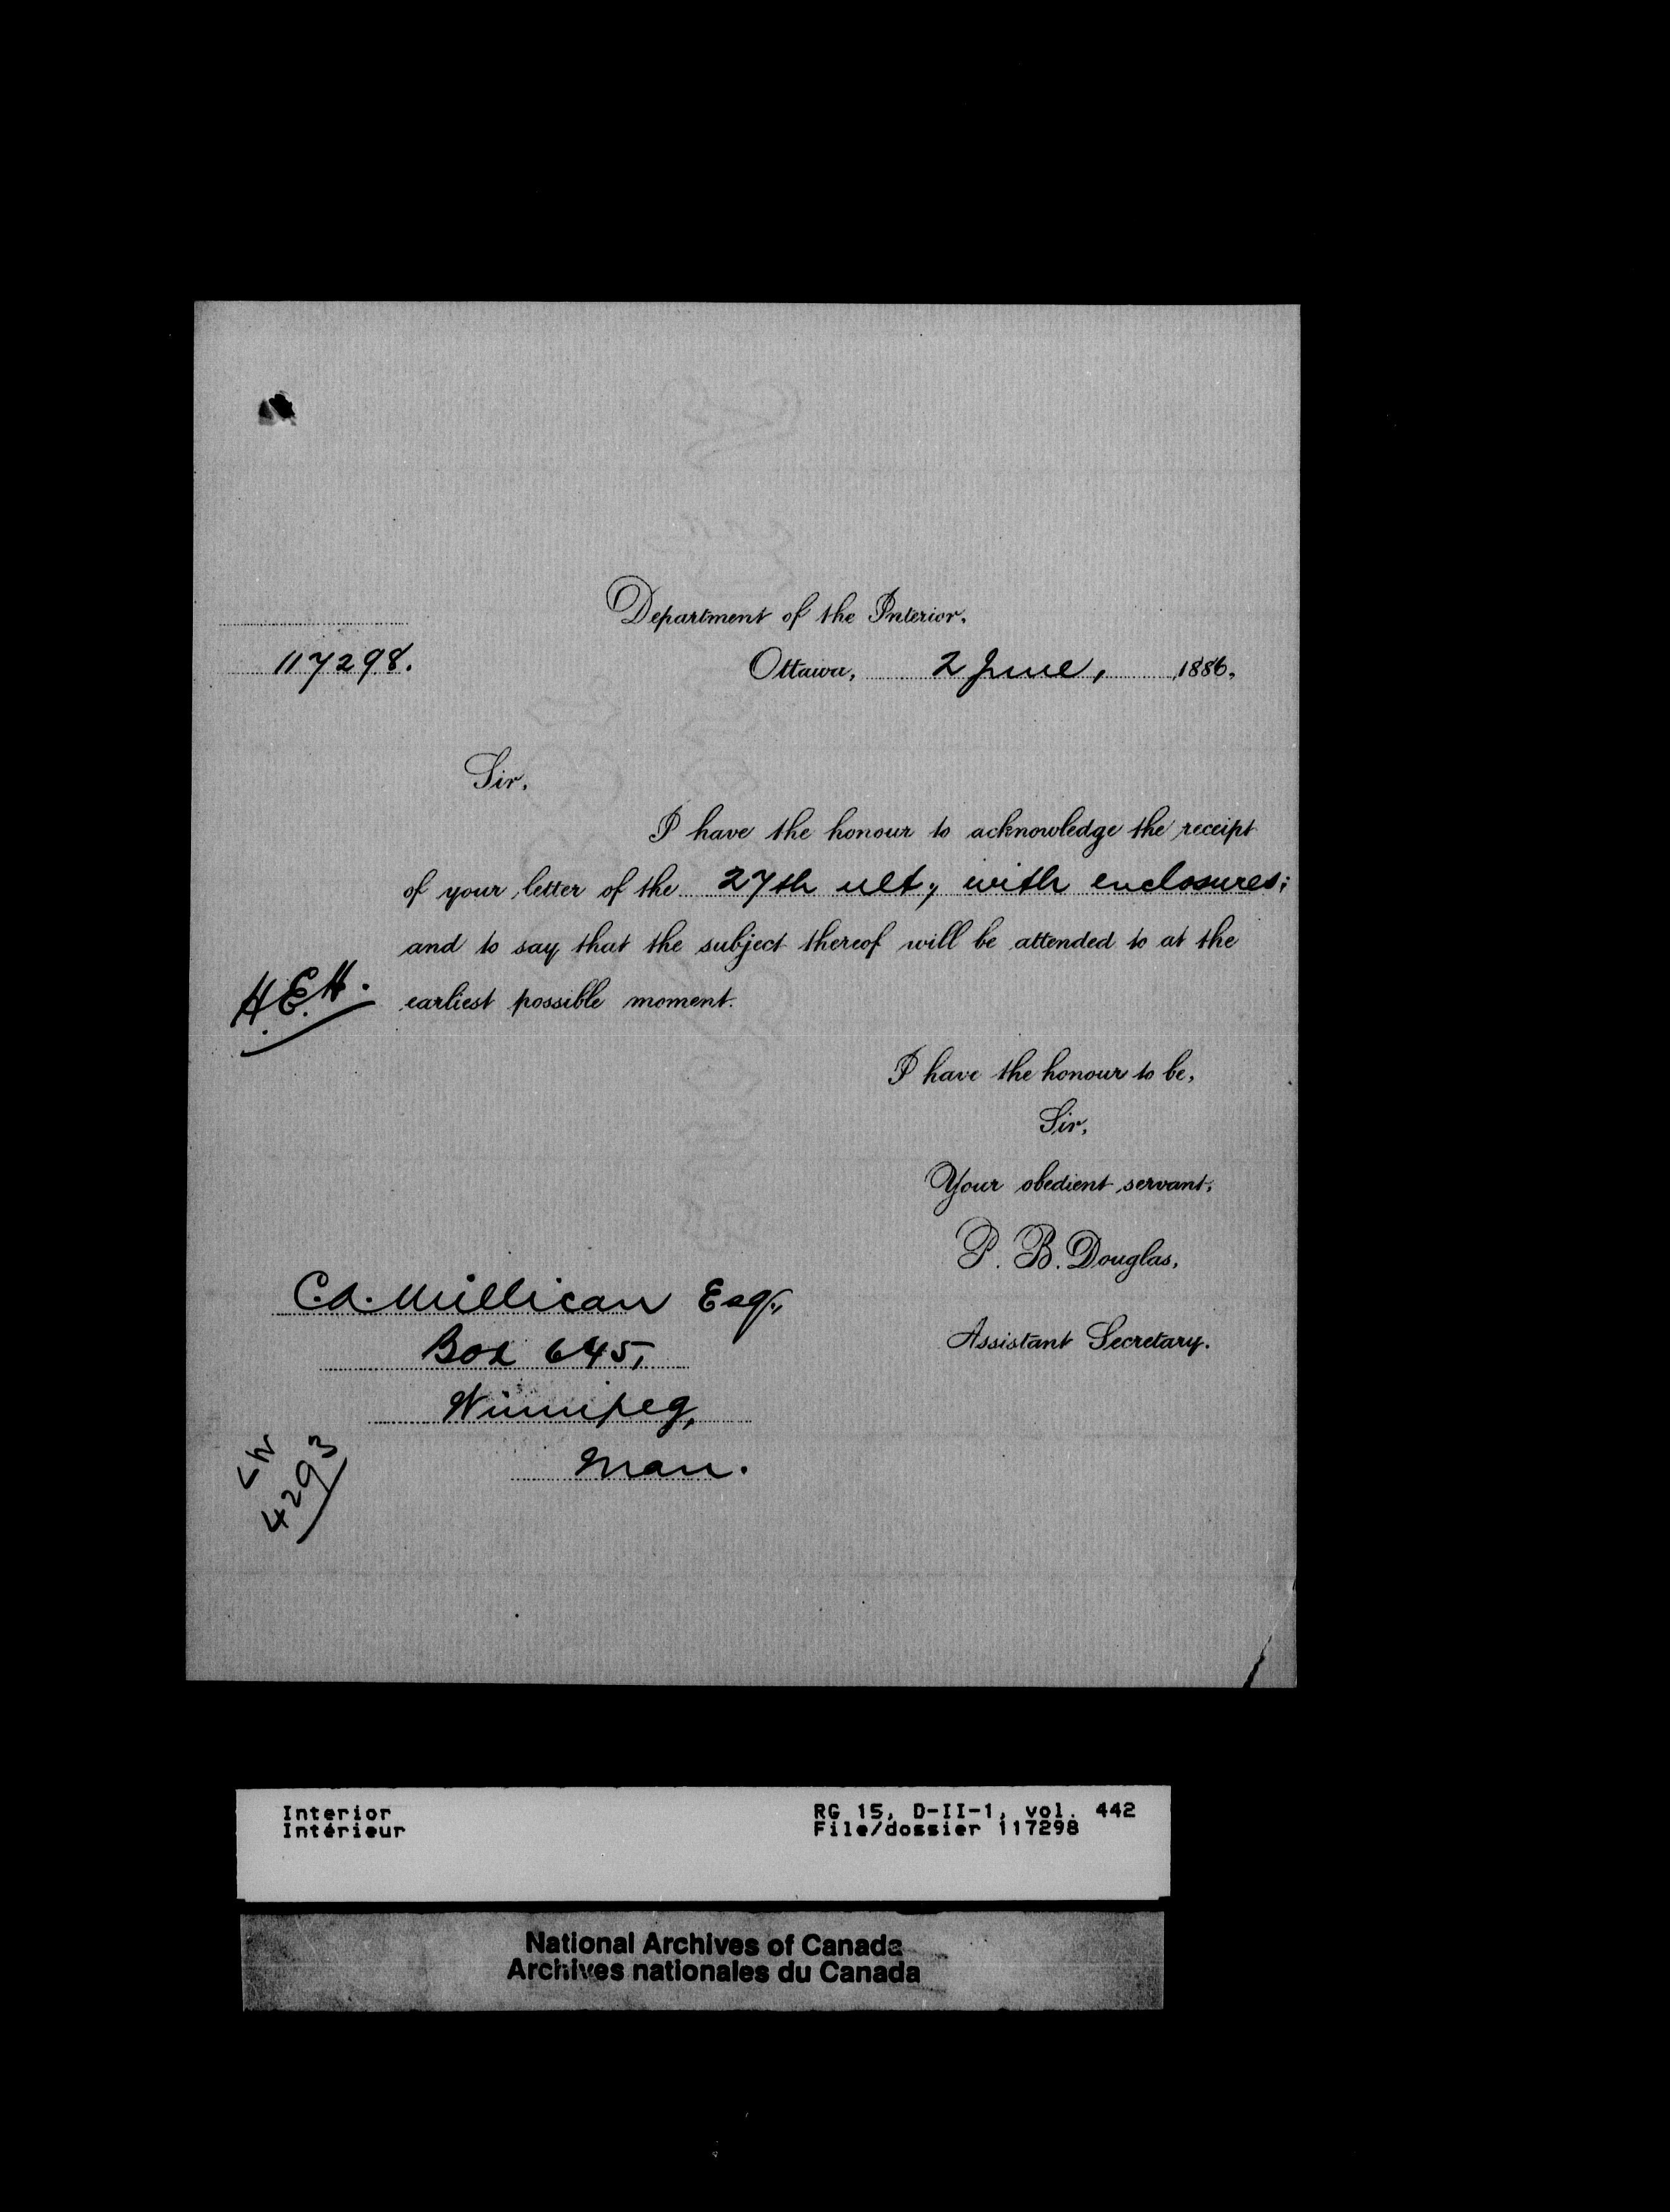 Department of the Interior.
117298.
Ottawa, 2 June, 1886.
Sir,
I have the honour to acknowledge the receipt
of your letter of the 27th ult., with enclosures;
and to say that the subject thereof will be attended to at the
H.E.H.
earliest possible moment.
I have the honour to be,
Sir,
Your obedient servant,
P. B. Douglas,
Assistant Secretary.
C.A. Millican Esq.,
Box 645,
Winnipeg,
Man.
4293
Interior
Intérieur
RG 15, D-II-1, vol. 442
File/dossier 117298
National Archives of Canada
Archives nationales du Canada